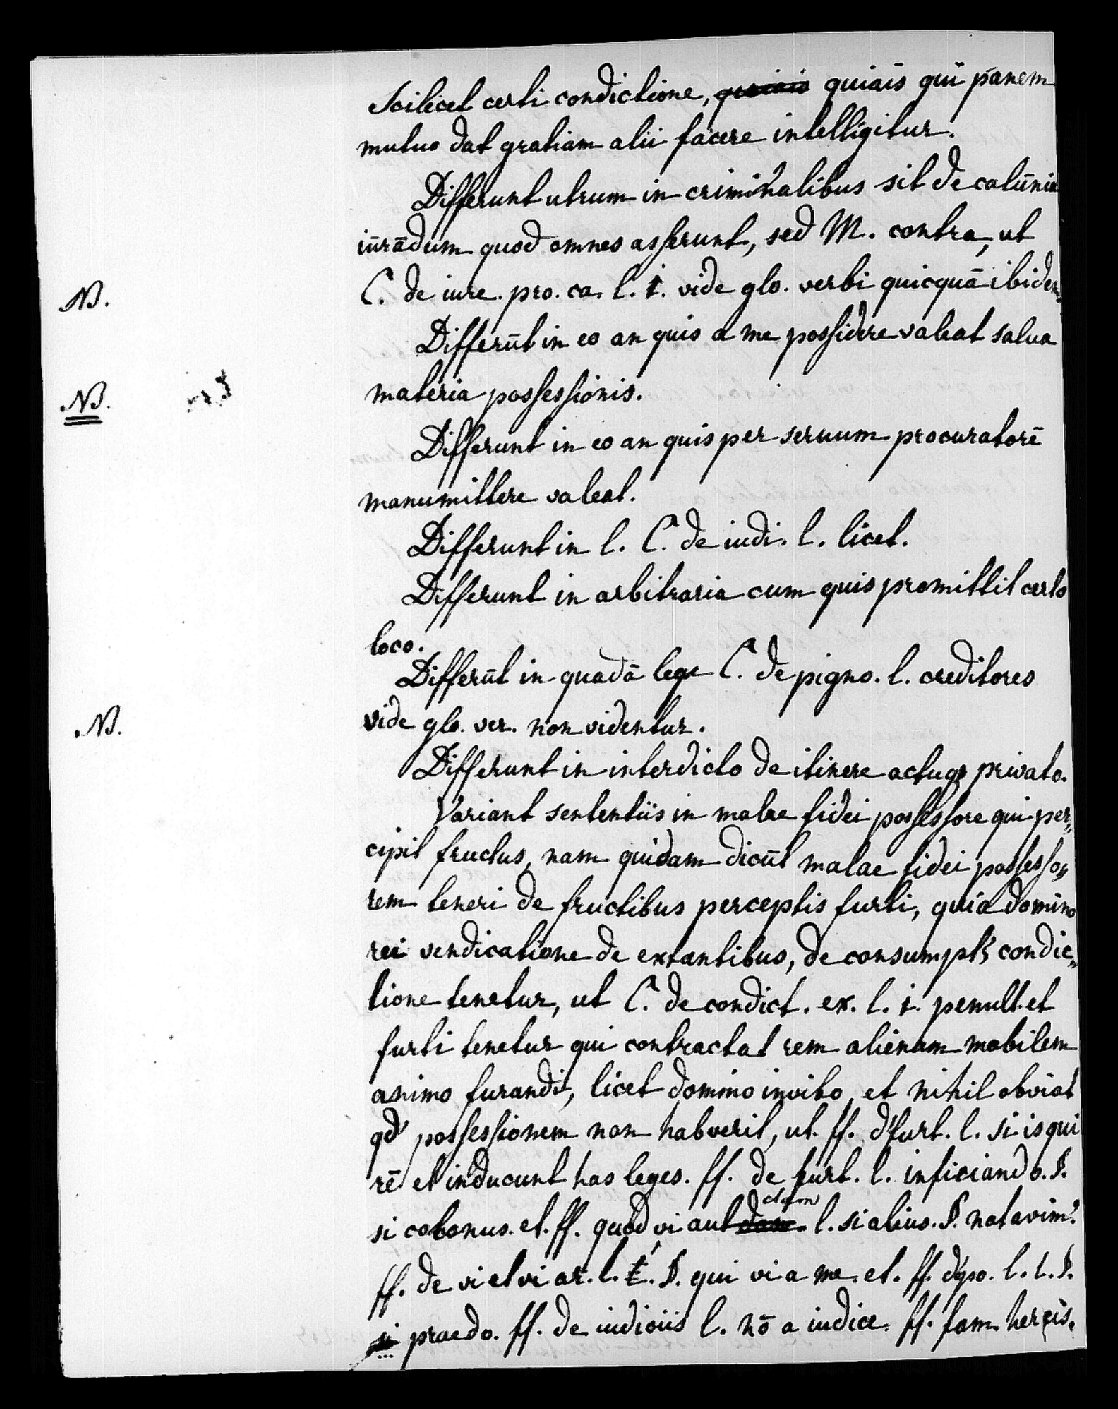 Scilicet certi condictione, quiaïs quī panem
mutuo dat gratiam alii facere intelligitur.
Differunt utrum in criminalibus sit de calūnia
iurādum quod omnes asserunt, sed M. contra, ut
N3. C. de iure. pro. ca. l. i. vide glo. verbi quicquā ibidem
Differūt in eo an quis a me possidere valeat salua
N3. materia possessionis.
Differunt in eo an quis per seruum procuratorē
manumittere valeat.
Differunt in l. C. de iudi. l. licet.
Differunt in arbitraria cum quis promittit certo
loco.
Differūt in quadā lege C. de pigno. l. creditores
N3. vide glo. ver. non videntur.
Differunt in interdicto de itinere actuq; privato.
Variant sententiis in malae fidei possessore qui per„
cipit fructus, nam quidam dicūt malae fidei possesso„
rem teneri de fructibus perceptis furti, quia domino
rei vendicatione de extantibus, de consumptis condic„
tione tenetur, ut C. de condict. ex. l. i. penult. et
furti tenetur qui contractat rem alienam mobilem
animo furandi, licet domino invito, et nihil obviat
qd' possessionem non habverit, ut. ff. d' furt. l. si is qui
rē et inducunt has leges. ff. de furt. l. inficiando. §.
si colonus. et. ff. quod vi aut clam l. si alius. §. notavim?
ff. de vi et vi ar. l. i. §. qui vi a me. et. ff. d' l. i. §.
praedo. ff. de iudiciis l. nō a iudice. ff. fam. hercis.